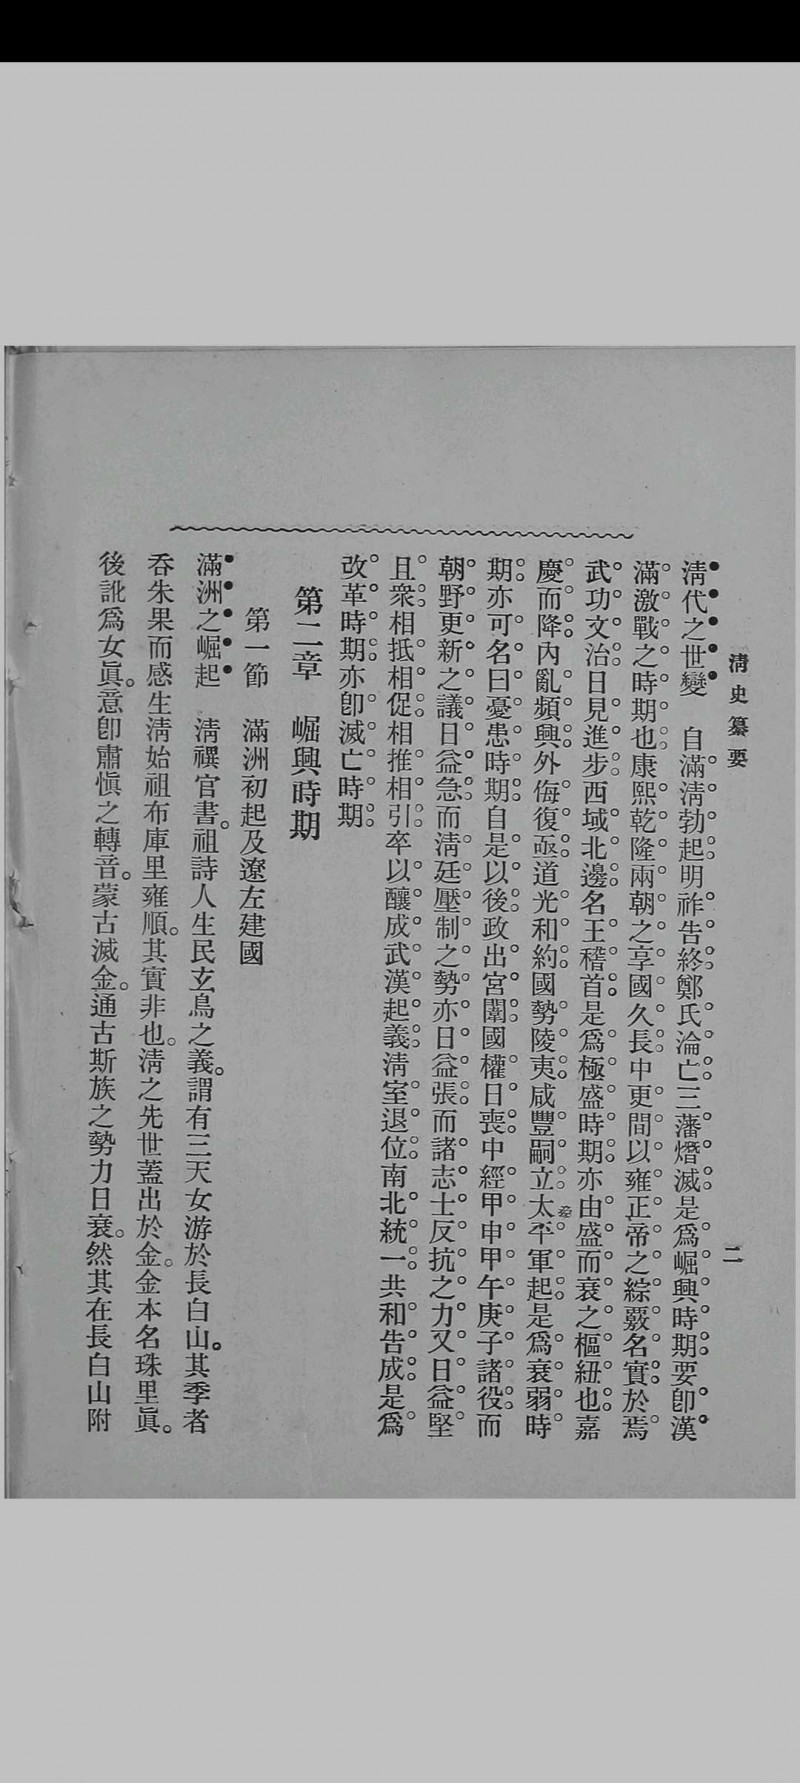 清史纂要
二
清代之世變　自滿淸勃起明祚告終鄭氏淪亡三藩熸滅是爲崛興時期要卽漢
滿激戰之時期也康熙乾隆兩朝之享國久長中更間以雍正帝之綜覈名實於焉
武功文治日見進步西域北邊名王稽首是爲極盛時期亦由盛而衰之樞紐也嘉
慶而降內亂頻興外侮復亟道光和約國勢陵夷咸豐嗣立太平軍起是爲衰弱時
期亦可名曰憂患時期自是以後政出宮闈國權日喪中經甲申甲午庚子諸役而
朝野更新之議日益急而淸廷壓制之勢亦日益張而諸志士反抗之力又日益堅
且衆相抵相促相推相引卒以釀成武漢起義淸室退位南北統一共和告成是爲
改革時期亦卽滅亡時期
第二章　崛興時期
第一節　滿洲初起及遼左建國
滿洲之崛起　淸禩官書。祖詩人生民玄鳥之義。謂有三天女游於長白山。其季者
吞朱果而感生淸始祖布庫里雍順。其實非也。淸之先世蓋出於金。金本名珠里眞。
後訛爲女眞。意卽肅愼之轉音。蒙古滅金。通古斯族之勢力日衰。然其在長白山附